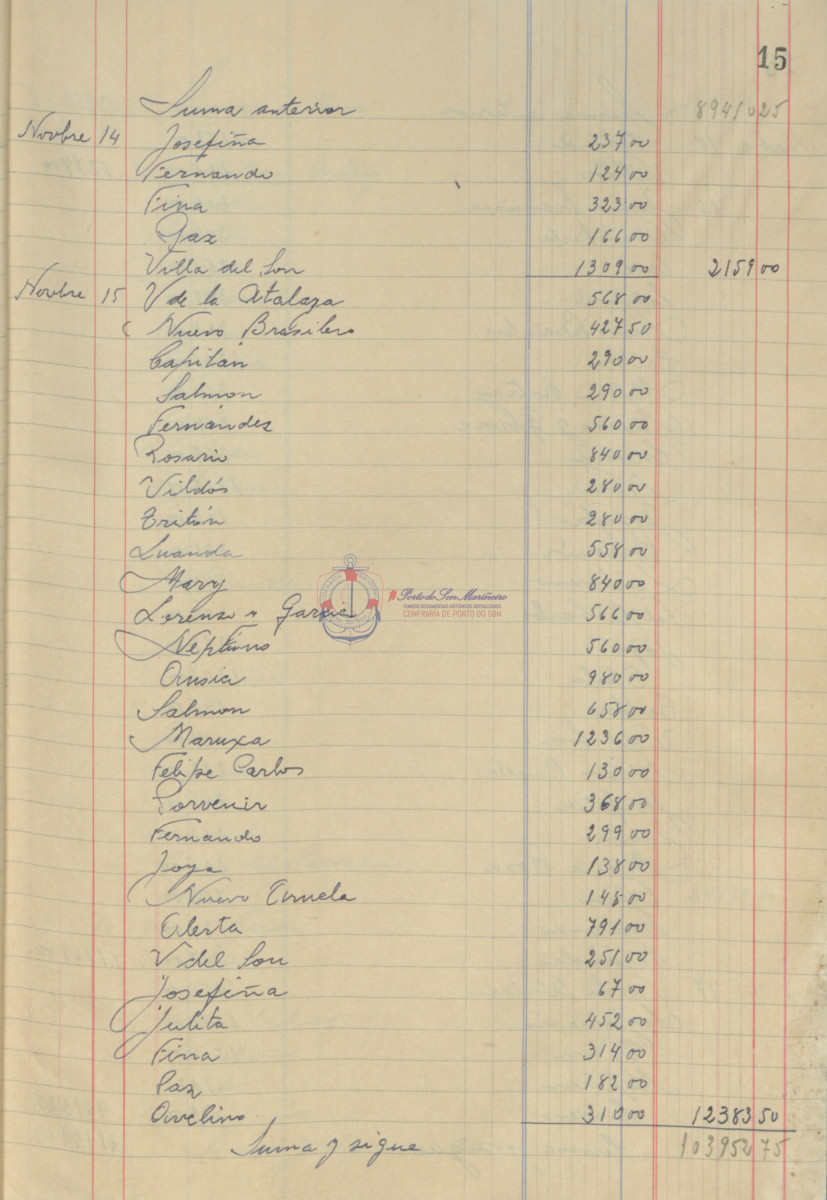 15
Suma anterior 89410 25
Novbre 14 Josefiña 237 00
Fernando 124 00
Fina 323 00
Paz 166 00
Villa del Son 1309 00 2159 00
Novbre 15 V de la Atalaya 568 00
Nuevo Brasilero 427 50
Capitán 290 00
Salmón 290 00
Fernández 560 00
Rosario 840 00
Vildós 280 00
Tritón 280 00
Luanda 558 00
Mary 840 00
Lorenzo y Garcia 566 00
Neptuno 560 00
980 00
Salmon 658 00
Maruxa 1236 00
Felipe Carlos 130 00
Porvenir 368 00
Fernando 299 00
Joya 138 00
Nuevo 148 00
Alerta 791 00
V del Son 251 00
Josefiña 67 00
Julita 452 00
Fina 314 00
Paz 182 00
Avelino 310 00 12383 50
Suma y sigue 103952 75
#Porto do Son Mariñeiro
FONDOS DOCUMENTAIS HISTÓRICOS DIXITALIZADOS
CONFRARÍA DE PORTO DO SON